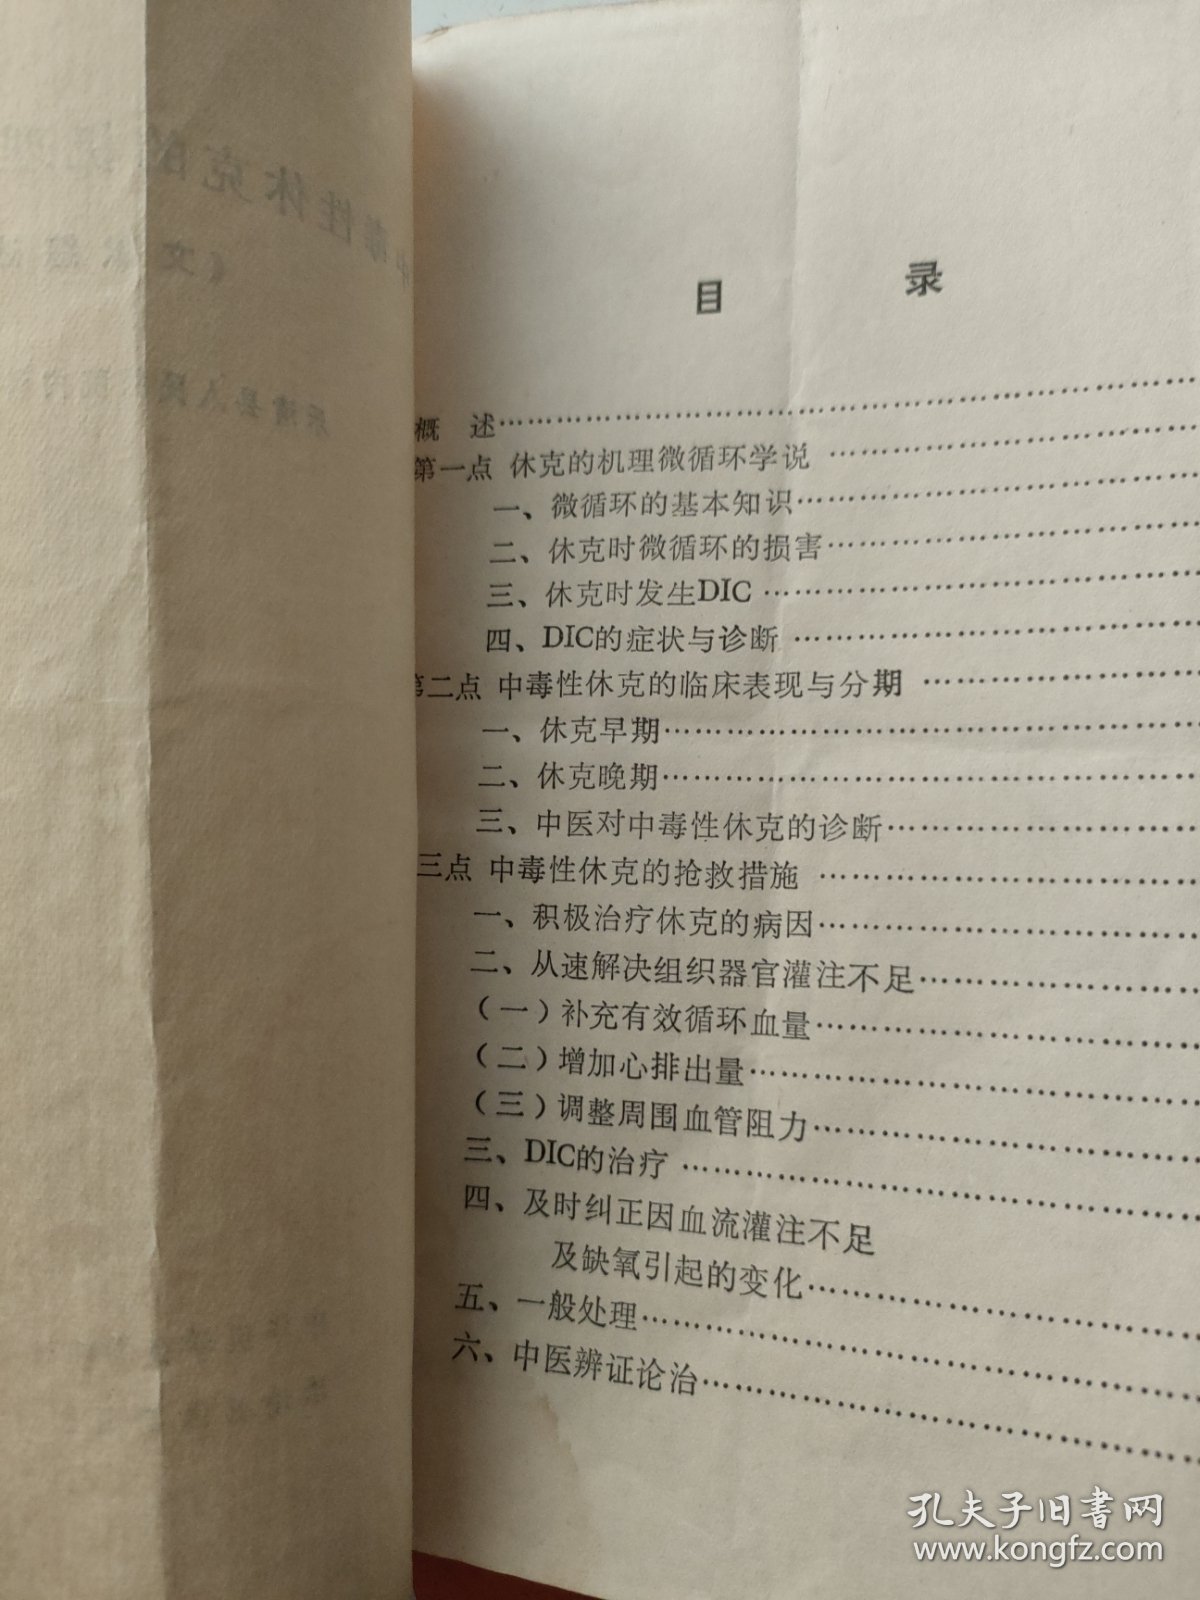 目 录
概 述
第一点 休克的机理微循环学说
一、微循环的基本知识
二、休克时微循环的损害
三、休克时发生DIC
四、DIC的症状与诊断
第二点 中毒性休克的临床表现与分期
一、休克早期
二、休克晚期
三、中医对中毒性休克的诊断
三点 中毒性休克的抢救措施
一、积极治疗休克的病因
二、从速解决组织器官灌注不足
(一)补充有效循环血量
(二)增加心排出量
(三)调整周围血管阻力
三、DIC的治疗
四、及时纠正因血流灌注不足
及缺氧引起的变化
五、一般处理
六、中医辨证论治
孔夫子旧书网
www.kongfz.com